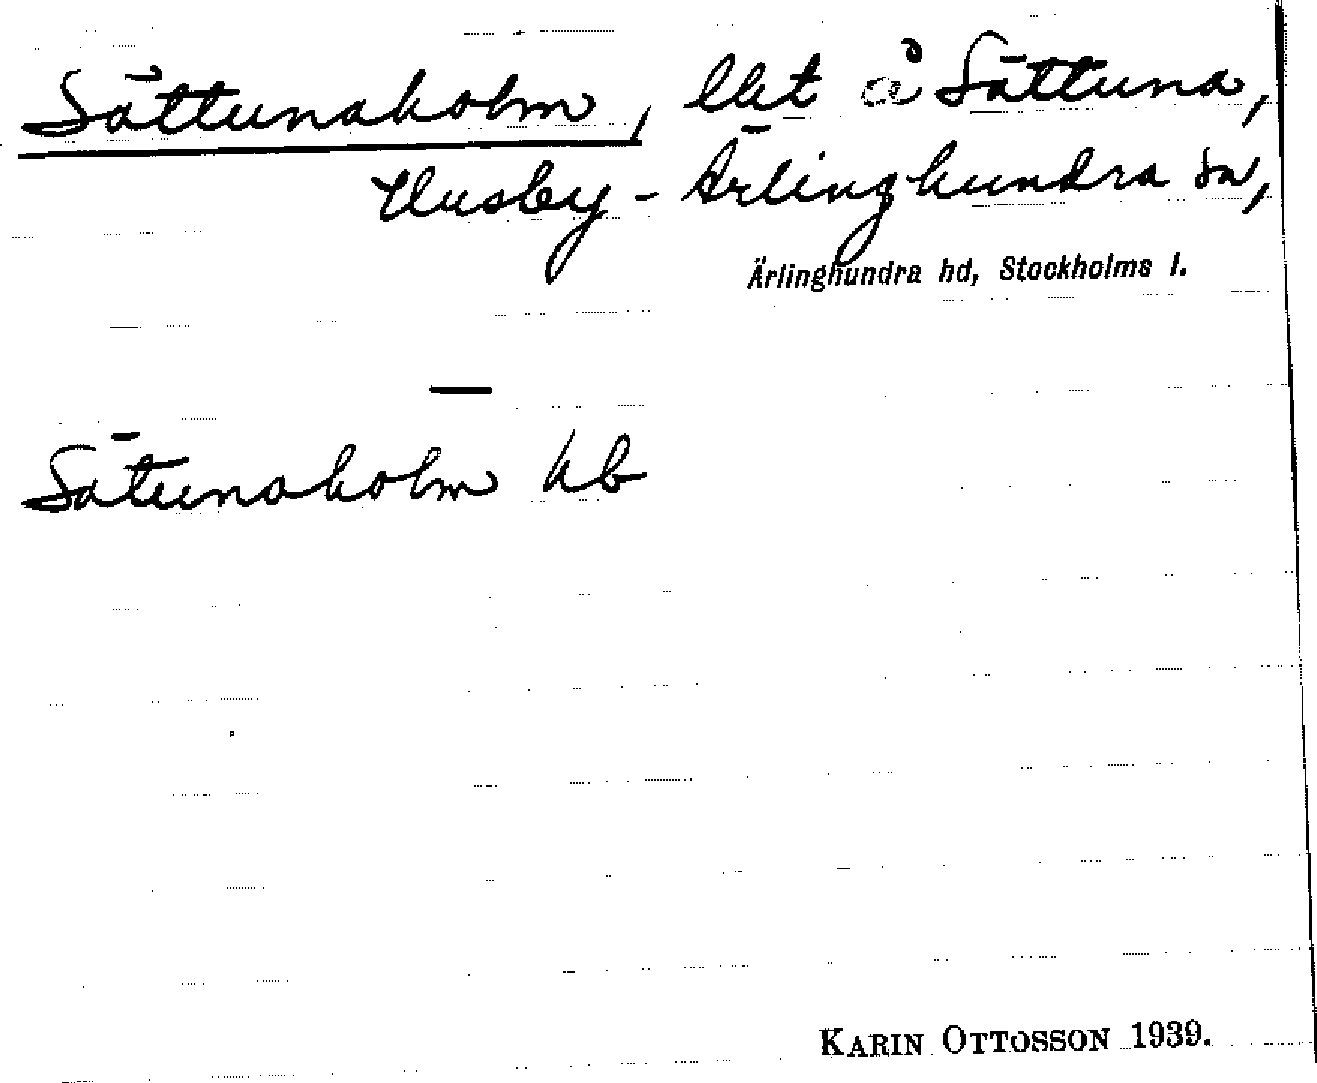 Sättunaholm, lht å Sättuna,
Husby-Ärlinghundra sn,
Ärlinghundra hd, Stockholms l.
—
Sätunaholm hb
KARIN OTTOSSON 1939.